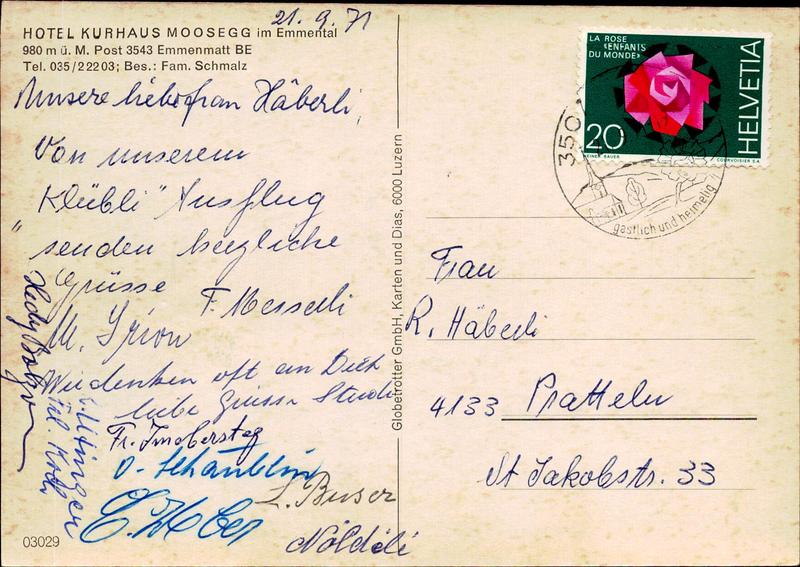 21. 9. 71
HOTEL KURHAUS MOOSEGG im Emmental
980 m ü. M. Post 3543 Emmenmatt BE
Tel. 035/22203; Bes.: Fam. Schmalz
Unsere liebe frau Häberli,
Von unserem
"Klübli" Ausflug
senden herzliche
Grüsse
F. Messerli
M. Irion
Wir denken oft an Dich
liebe Grüsse
Fr. Imobersteg
O. Schäublin
L. Buser
E. Weber
Nöldeli
Hedy
03029
Globetrotter GmbH, Karten und Dias, 6000 Luzern
LA ROSE
«ENFANTS
DU MONDE»
20
HELVETIA
COURVOISIER S.A.
350
gastlich und heimelig
Frau
R. Häberli
4133 Pratteln
St Jakobstr. 33